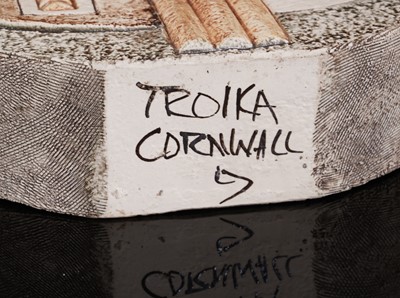 TROIKA
CORNWALL